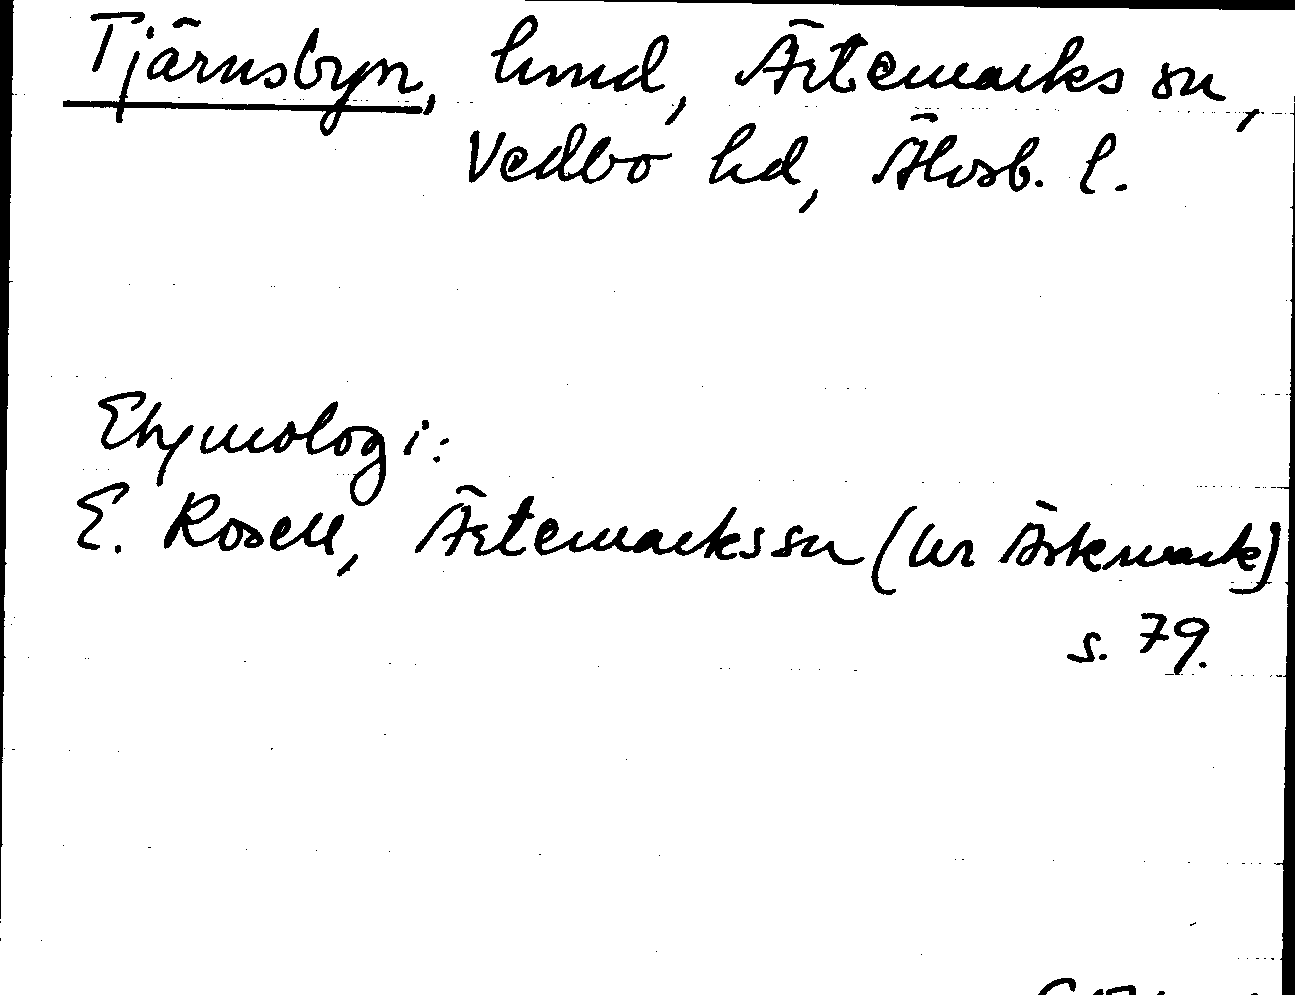 Tjärnsbyn, hmd, Ärtemarks sn,
Vedbo hd, Älvsb. l.
Etymologi:
E. Rosell, Ärtemarks sn (ur Ärtemark)
s. 79.